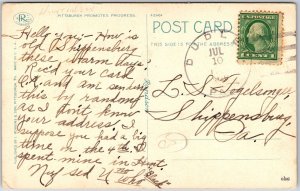 PITTSBURGH PROMOTES PROGRESS.
POST CARD
JUL
10
Hello you - How is
old Shippensburg
these warm days
Rec'd your card
O.K. and am sending
this by random
as I don't know
your address. I
suppose you had a big
time on the 4th. I
spent mine in
L. S. Fogelsonger
Shippensburg
Pa.